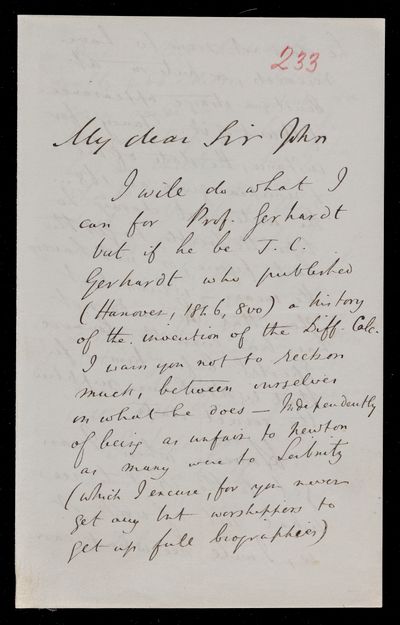 233
My dear Sir John
I will do what I
can for Prof. Gerhardt
but if he be J. C.
Gerhardt who published
(Hanover, 1846, 8vo) a history
of the invention of the Diff. Calc.
I warn you not to reckon
much, between ourselves
on what he does — Independently
of being as unfair to Newton
as many were to Leibnitz
(which I excuse, for you never
get any but worshippers to
get up full biographies)